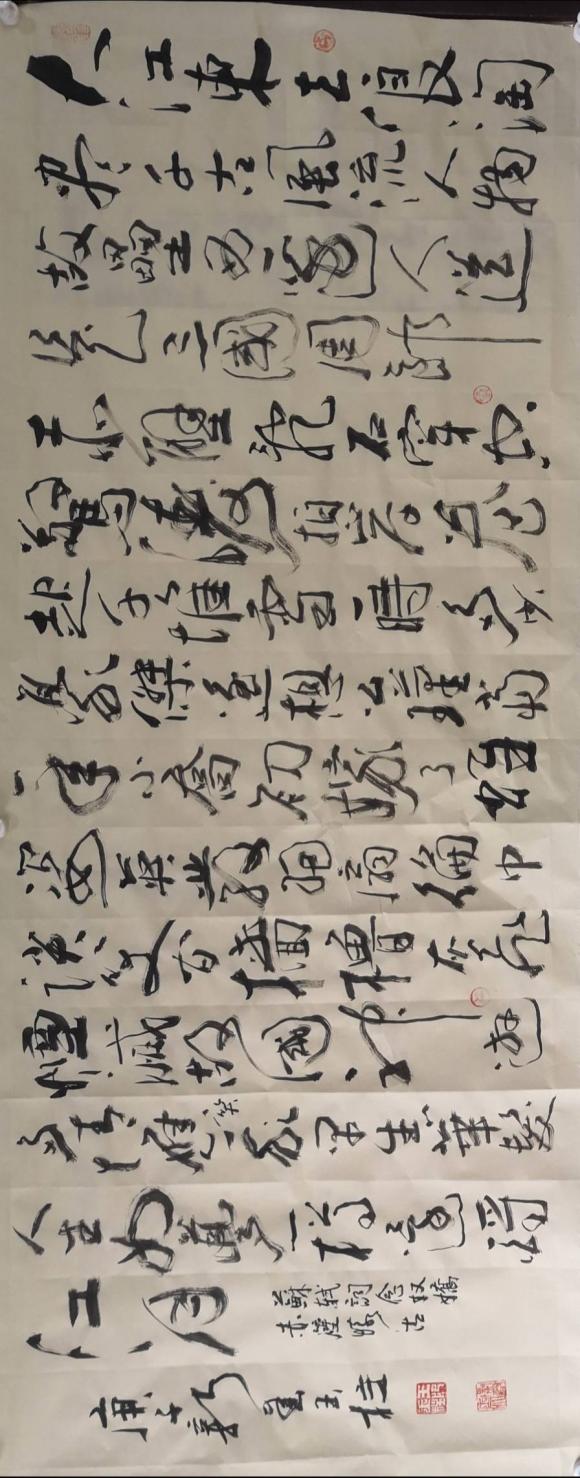 大江東去浪淘
盡千古風流人物
故壘西邊人道
是三國周郎
赤壁亂石穿空
驚濤拍岸卷
起千堆雪一時多少
豪傑遥想公瑾當
年小喬初嫁了雄
姿英發羽扇綸巾
談笑間檣櫓灰飛
煙滅故國神遊
多情應笑我早生華髮
人生如夢一樽還酹
江月
蘇軾詞念奴嬌
赤壁懷古
庚子新